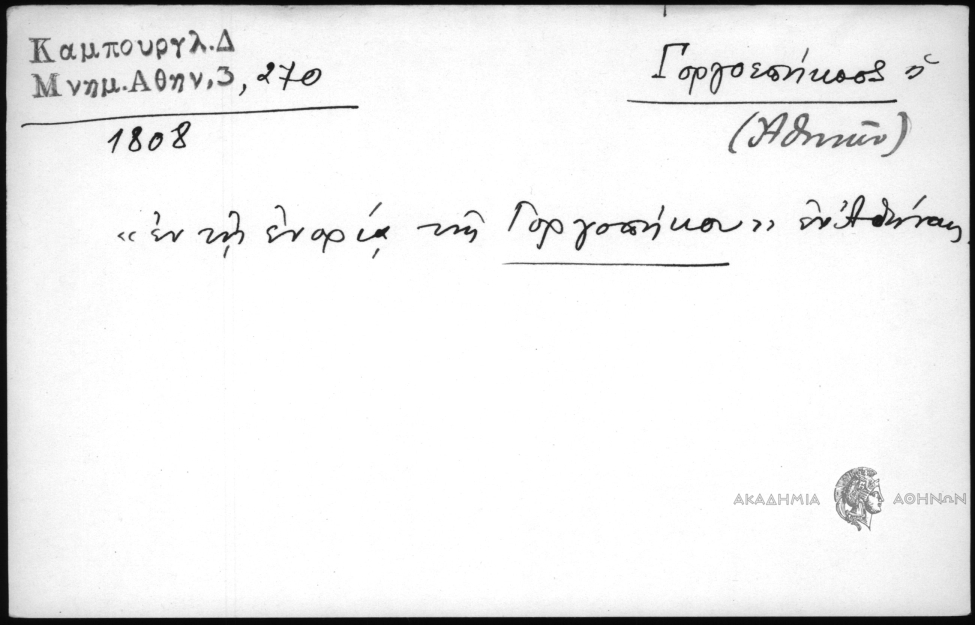 Καμπουργλ.Δ
Μνημ.Αθην,3, 270
1808
Γοργοεπήκοος ἡ
(Ἀθηνῶν)
«ἐν τῇ ἐνορίᾳ τῆς Γοργοπήκου» ἐν Ἀθήναις.
ΑΚΑΔΗΜΙΑ ΑΘΗΝΩΝ